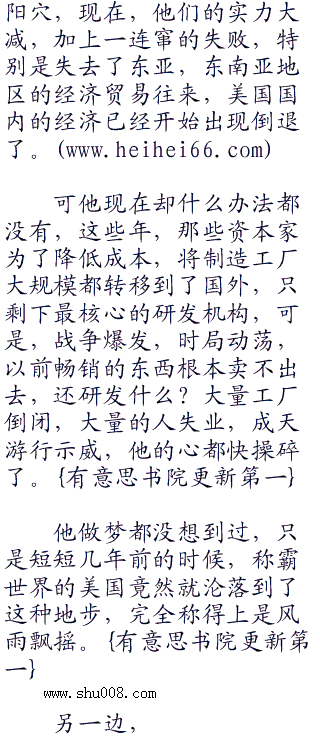 阳穴，现在，他们的实力大
减，加上一连窜的失败，特
别是失去了东亚，东南亚地
区的经济贸易往来，美国国
内的经济已经开始出现倒退
了。(www.heihei66.com)
可他现在却什么办法都
没有，这些年，那些资本家
为了降低成本，将制造工厂
大规模都转移到了国外，只
剩下最核心的研发机构，可
是，战争爆发，时局动荡，
以前畅销的东西根本卖不出
去，还研发什么？大量工厂
倒闭，大量的人失业，成天
游行示威，他的心都快操碎
了。{有意思书院更新第一}
他做梦都没想到过，只
是短短几年前的时候，称霸
世界的美国竟然就沦落到了
这种地步，完全称得上是风
雨飘摇。{有意思书院更新第
一}
www.shu008.com
另一边，